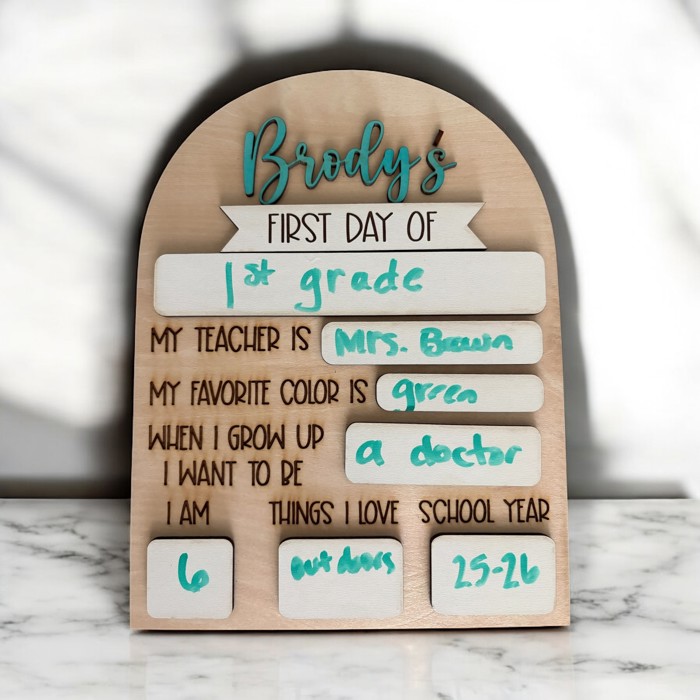 Brody's
FIRST DAY OF
1st grade
MY TEACHER IS Mrs. Brown
MY FAVORITE COLOR IS green
WHEN I GROW UP
I WANT TO BE a doctor
I AM THINGS I LOVE SCHOOL YEAR
6 outdoors 25-26